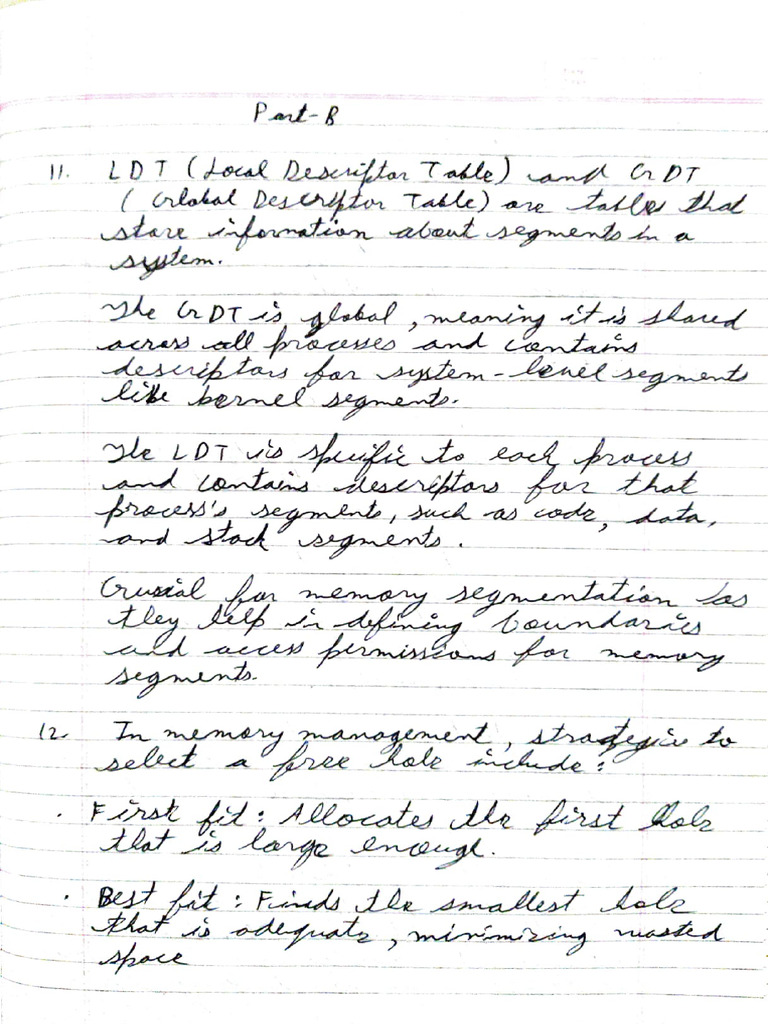 Part-B
11. LDT (Local Descriptor Table) and GDT
(Global Descriptor Table) are tables that
store information about segments in a
system.
The GDT is global, meaning it is shared
across all processes and contains
descriptors for system-level segments
like kernel segments.
The LDT is specific to each process
and contains descriptors for that
process's segments, such as code, data,
and stack segments.
Crucial for memory segmentation as
they help in defining boundaries
and access permissions for memory
segments.
12. In memory management, strategies to
select a free hole include:
. First fit: Allocates the first hole
that is large enough.
. Best fit: Finds the smallest hole
that is adequate, minimizing wasted
space